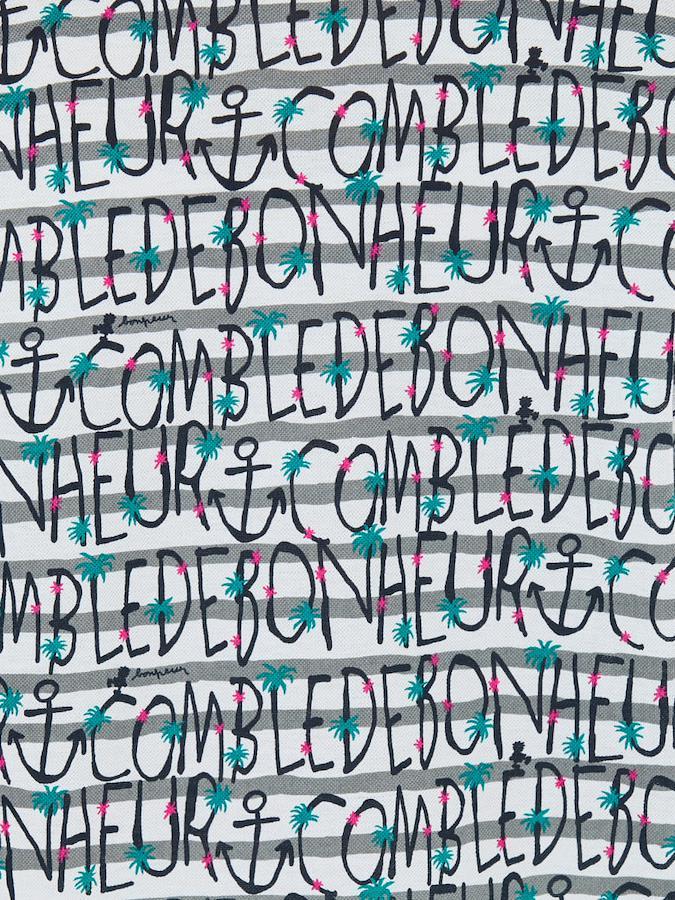 COMBLÉDEBONHEU
NHEUR COMBLÉDEB
OMBLEDEBONHEUR CO
bonheur
COMBLEDEBONHEU
NHEUR COMBLÉDEBO
OMBLEDEBONHEUR CO
bonheur
COMBLEDEBONHEU
NHEUR COMBLÉDEBO